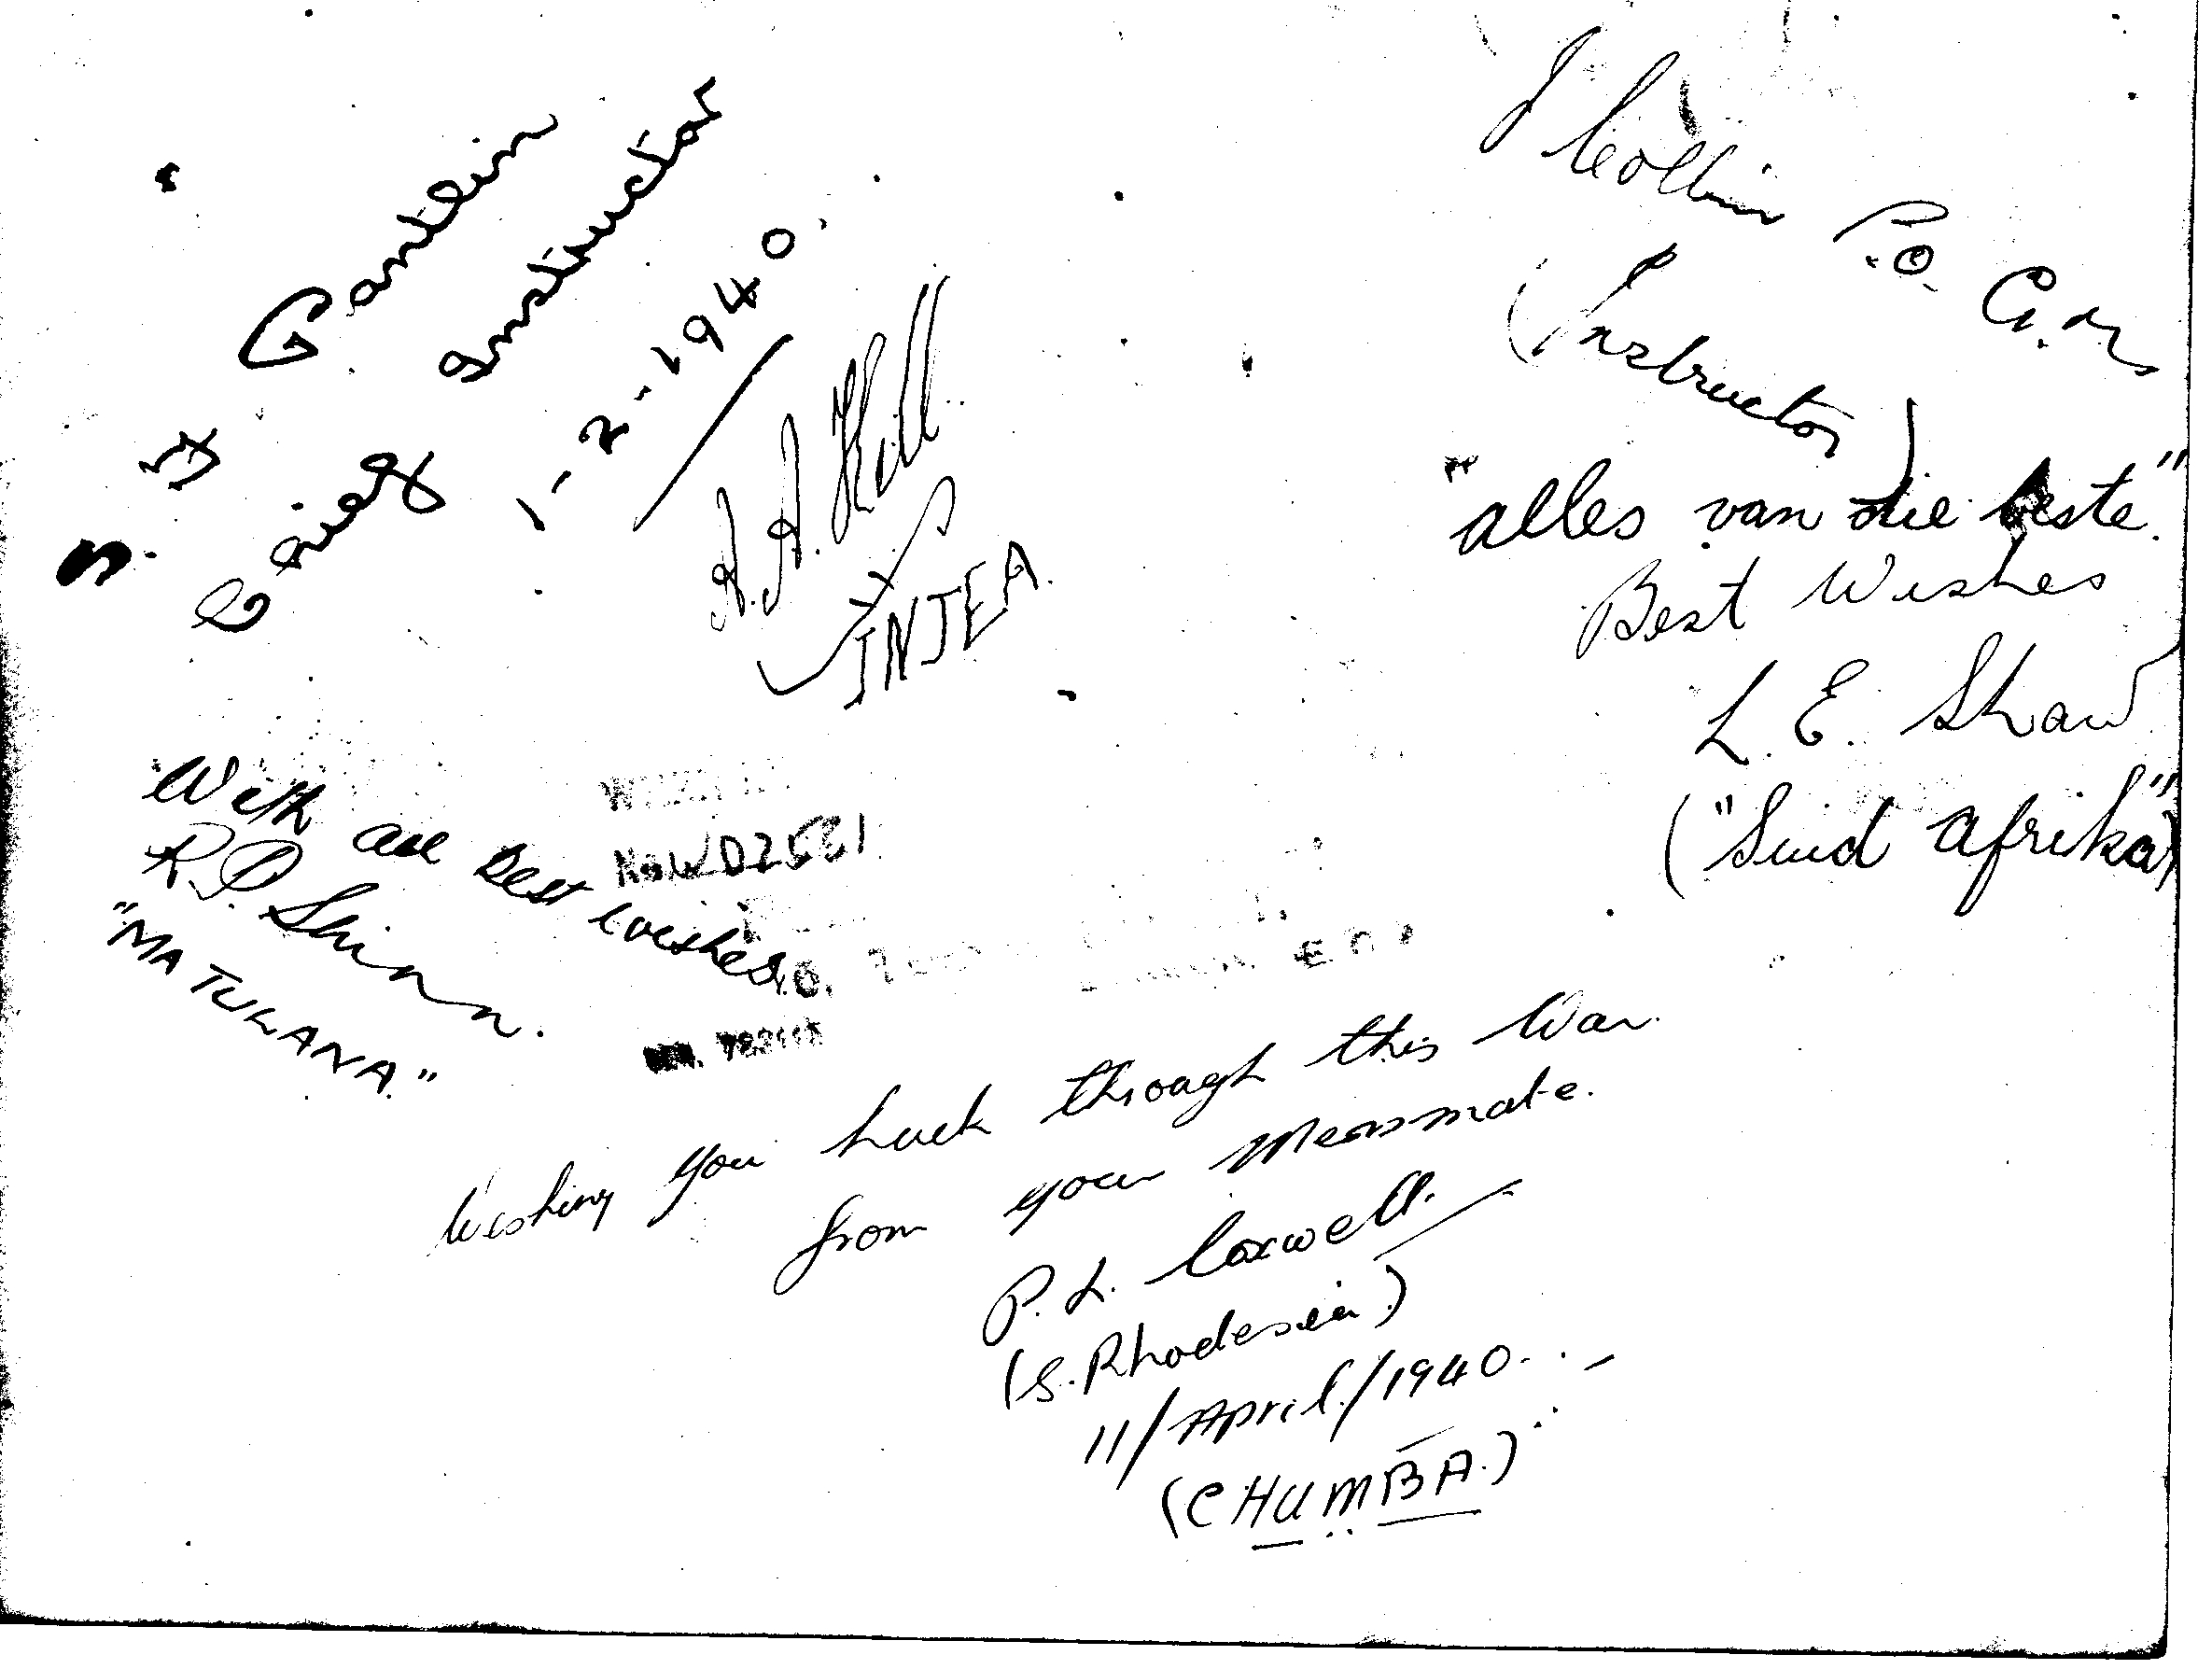 S. H Gantlein
Craig Instructor
1-2-1940.
A. A. Hill
INJEA.
J Collin P.O. G.M
(Instructor)
"alles van die beste."
Best Wishes
L. E. Shaw
("Suid Afrika")
With all best wishes
R.P. Shinn.
"MATULANA."
Wishing you luck through this War.
from your Messmate.
P. L. Coxwell.
(S. Rhodesia.)
11/April/1940
(CHUMBA.)